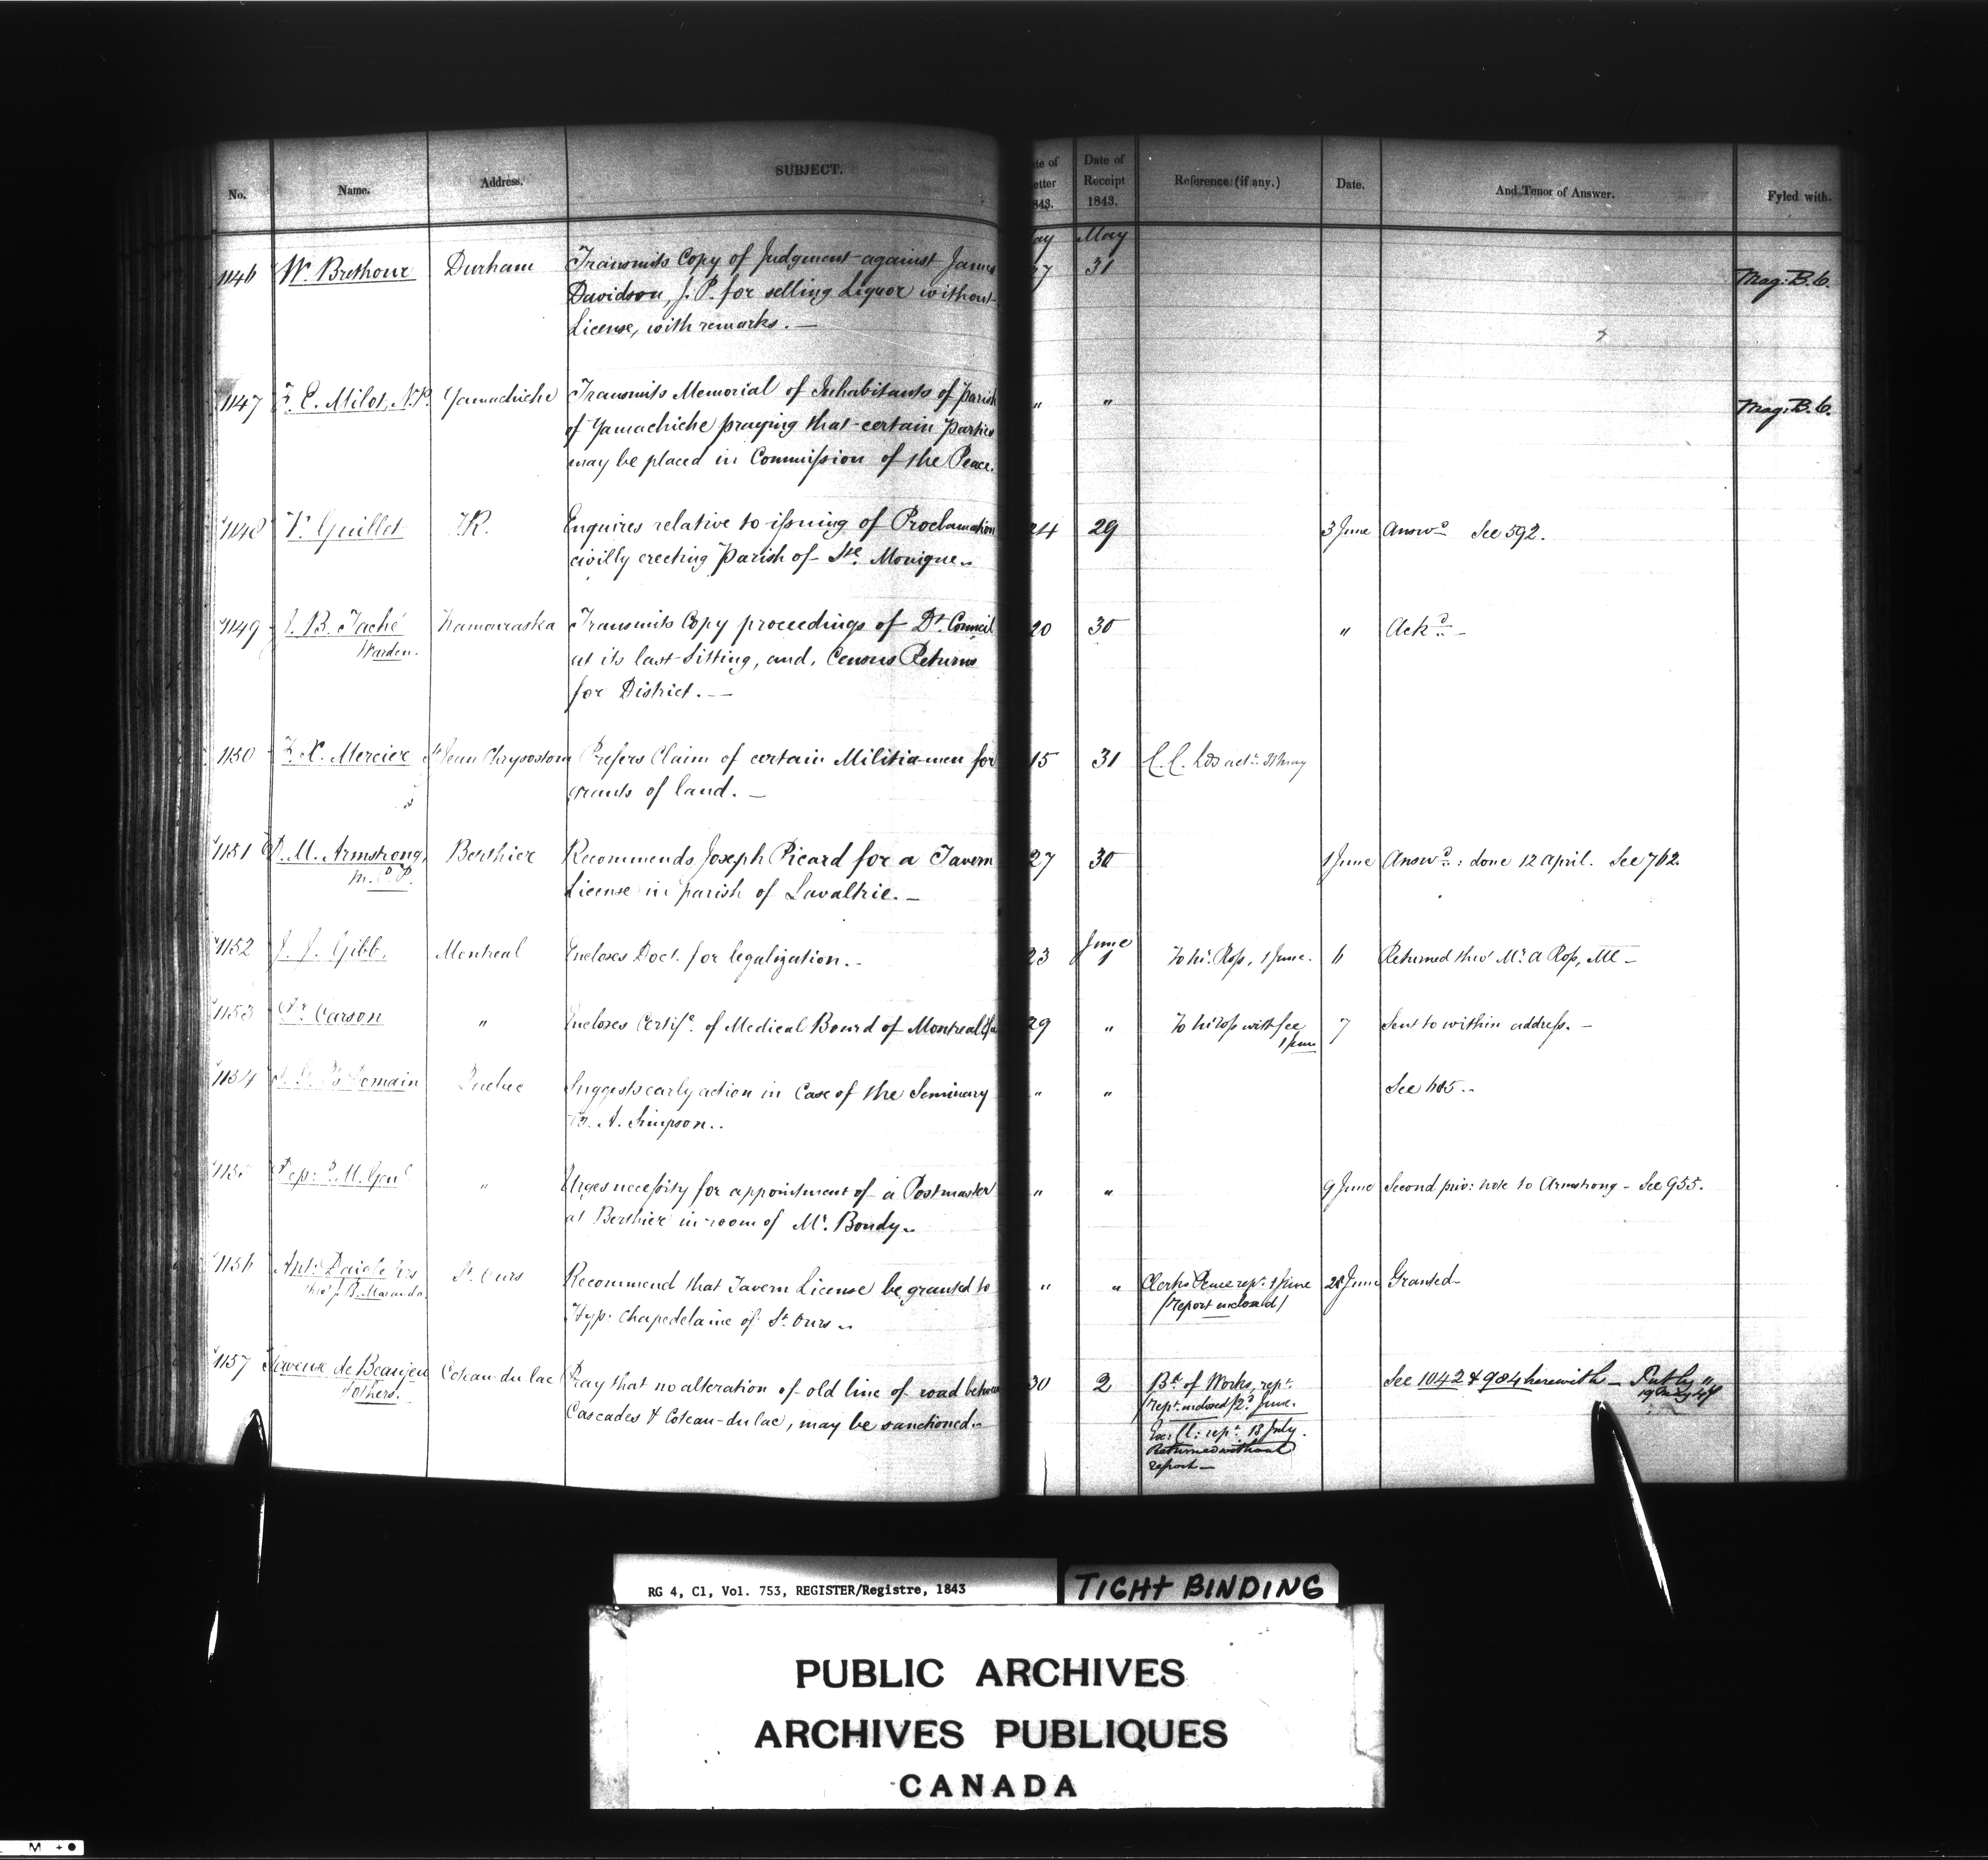 No. Name. Address. SUBJECT. te of etter 843. Date of Receipt 1843. Reference (if any.) Date. And Tenor of Answer. Fyled with.
ay May
1146 W. Brethour Durham Transmits Copy of Judgment against James 27 31 Mag: B. C.
Davidson, J. P. for selling Liquor without
License, with remarks. —
1147 F. E. Milot, N.P. Yamachiche Transmits Memorial of Inhabitants of Parish " " Mag: B. C.
of Yamachiche praying that certain Parties
may be placed in Commission of the Peace.
1148 V. Guillet T.R. Enquires relative to issuing of Proclamation 24 29 3 June Answd See 592.
civilly erecting Parish of Ste. Monique..
1149 J. B. Taché Kamouraska Transmits Copy proceedings of Dt. Council 20 30 " Ackd. —
Warden. at its last Sitting, and, Census Returns
for District. —
1150 F. X. Mercier St Jean Chrysostom Prefers Claim of certain Militiamen for 15 31 C. C. Lds 31 May
grants of land. —
1151 D. M. Armstrong, Berthier Recommends Joseph Picard for a Tavern 27 30 1 June Answd.: done 12 April. See 762.
M. P. P. License in parish of Lavaltrie. —
June
1152 J. J. Gibb, Montreal Encloses Doct. for legalization. — 23 1 To Mr. Ross, 1 June. 6 Returned thro' Mr. A Ross, Ml —
1153 Dr Carson " Encloses Certife. of Medical Board of Montreal 29 " To Mr Ross with fee 7 Sent to within address. —
1 June
1154 Romain Quebec Suggests early action in Case of the Seminary " " See 605..
A. Simpson..
1155 Dep: P. M. Genl " Urges necessity for appointment of a Postmaster " " 9 June Second priv: note to Armstrong — See 955.
at Berthier in room of Mr. Bondy..
1156 Ant: Daigle St. Ours Recommend that Tavern License be granted to " " Clerk Peace rept. 1 June 28 June Granted —
thro' J. B. Hyp: Chapedelaine of St. Ours.. (report enclosed)
1157 Saveuse de Beaujeu Coteau du lac Pray that no alteration of old line of road between 30 2 Bd of Works, rept. See 1042 & 984 herewith —
& others. Cascades & Coteau-du lac, may be sanctioned.. (rept. enclosed) 2d June.
Exe: Cl: rept 13 July.
Returned without
report —
RG 4, C1, Vol. 753, REGISTER/Registre, 1843
TIGHT BINDING
PUBLIC ARCHIVES
ARCHIVES PUBLIQUES
CANADA
M +●